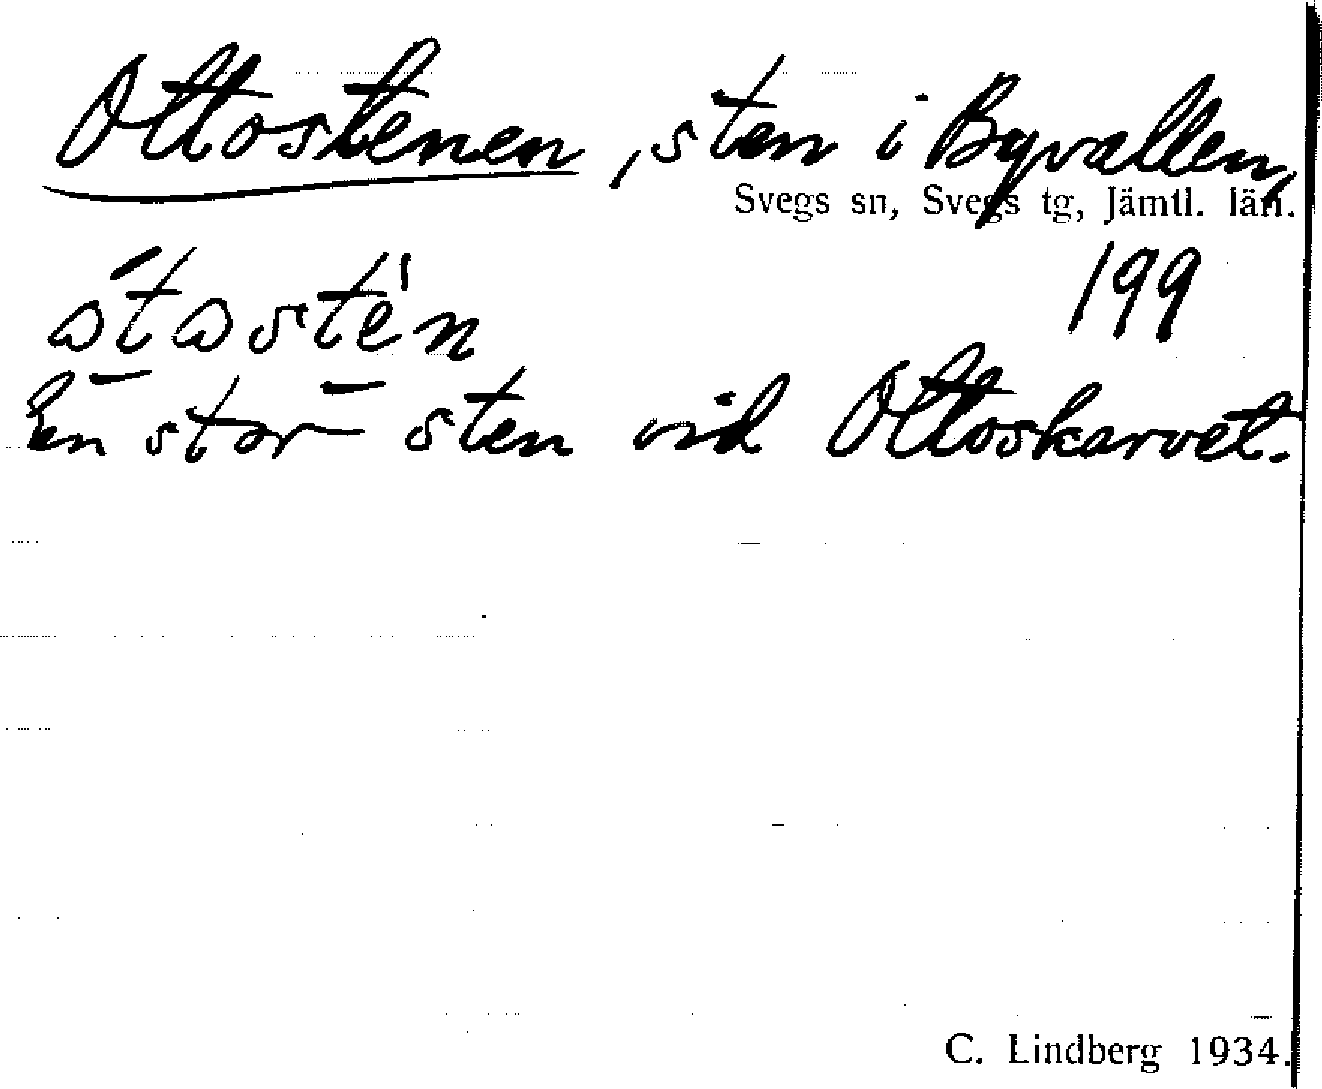 Ottostenen, sten i Byvallen,
Svegs sn, Svegs tg, Jämtl. län.
199
En stor sten vid Ottoskarvet.
C. Lindberg 1934.